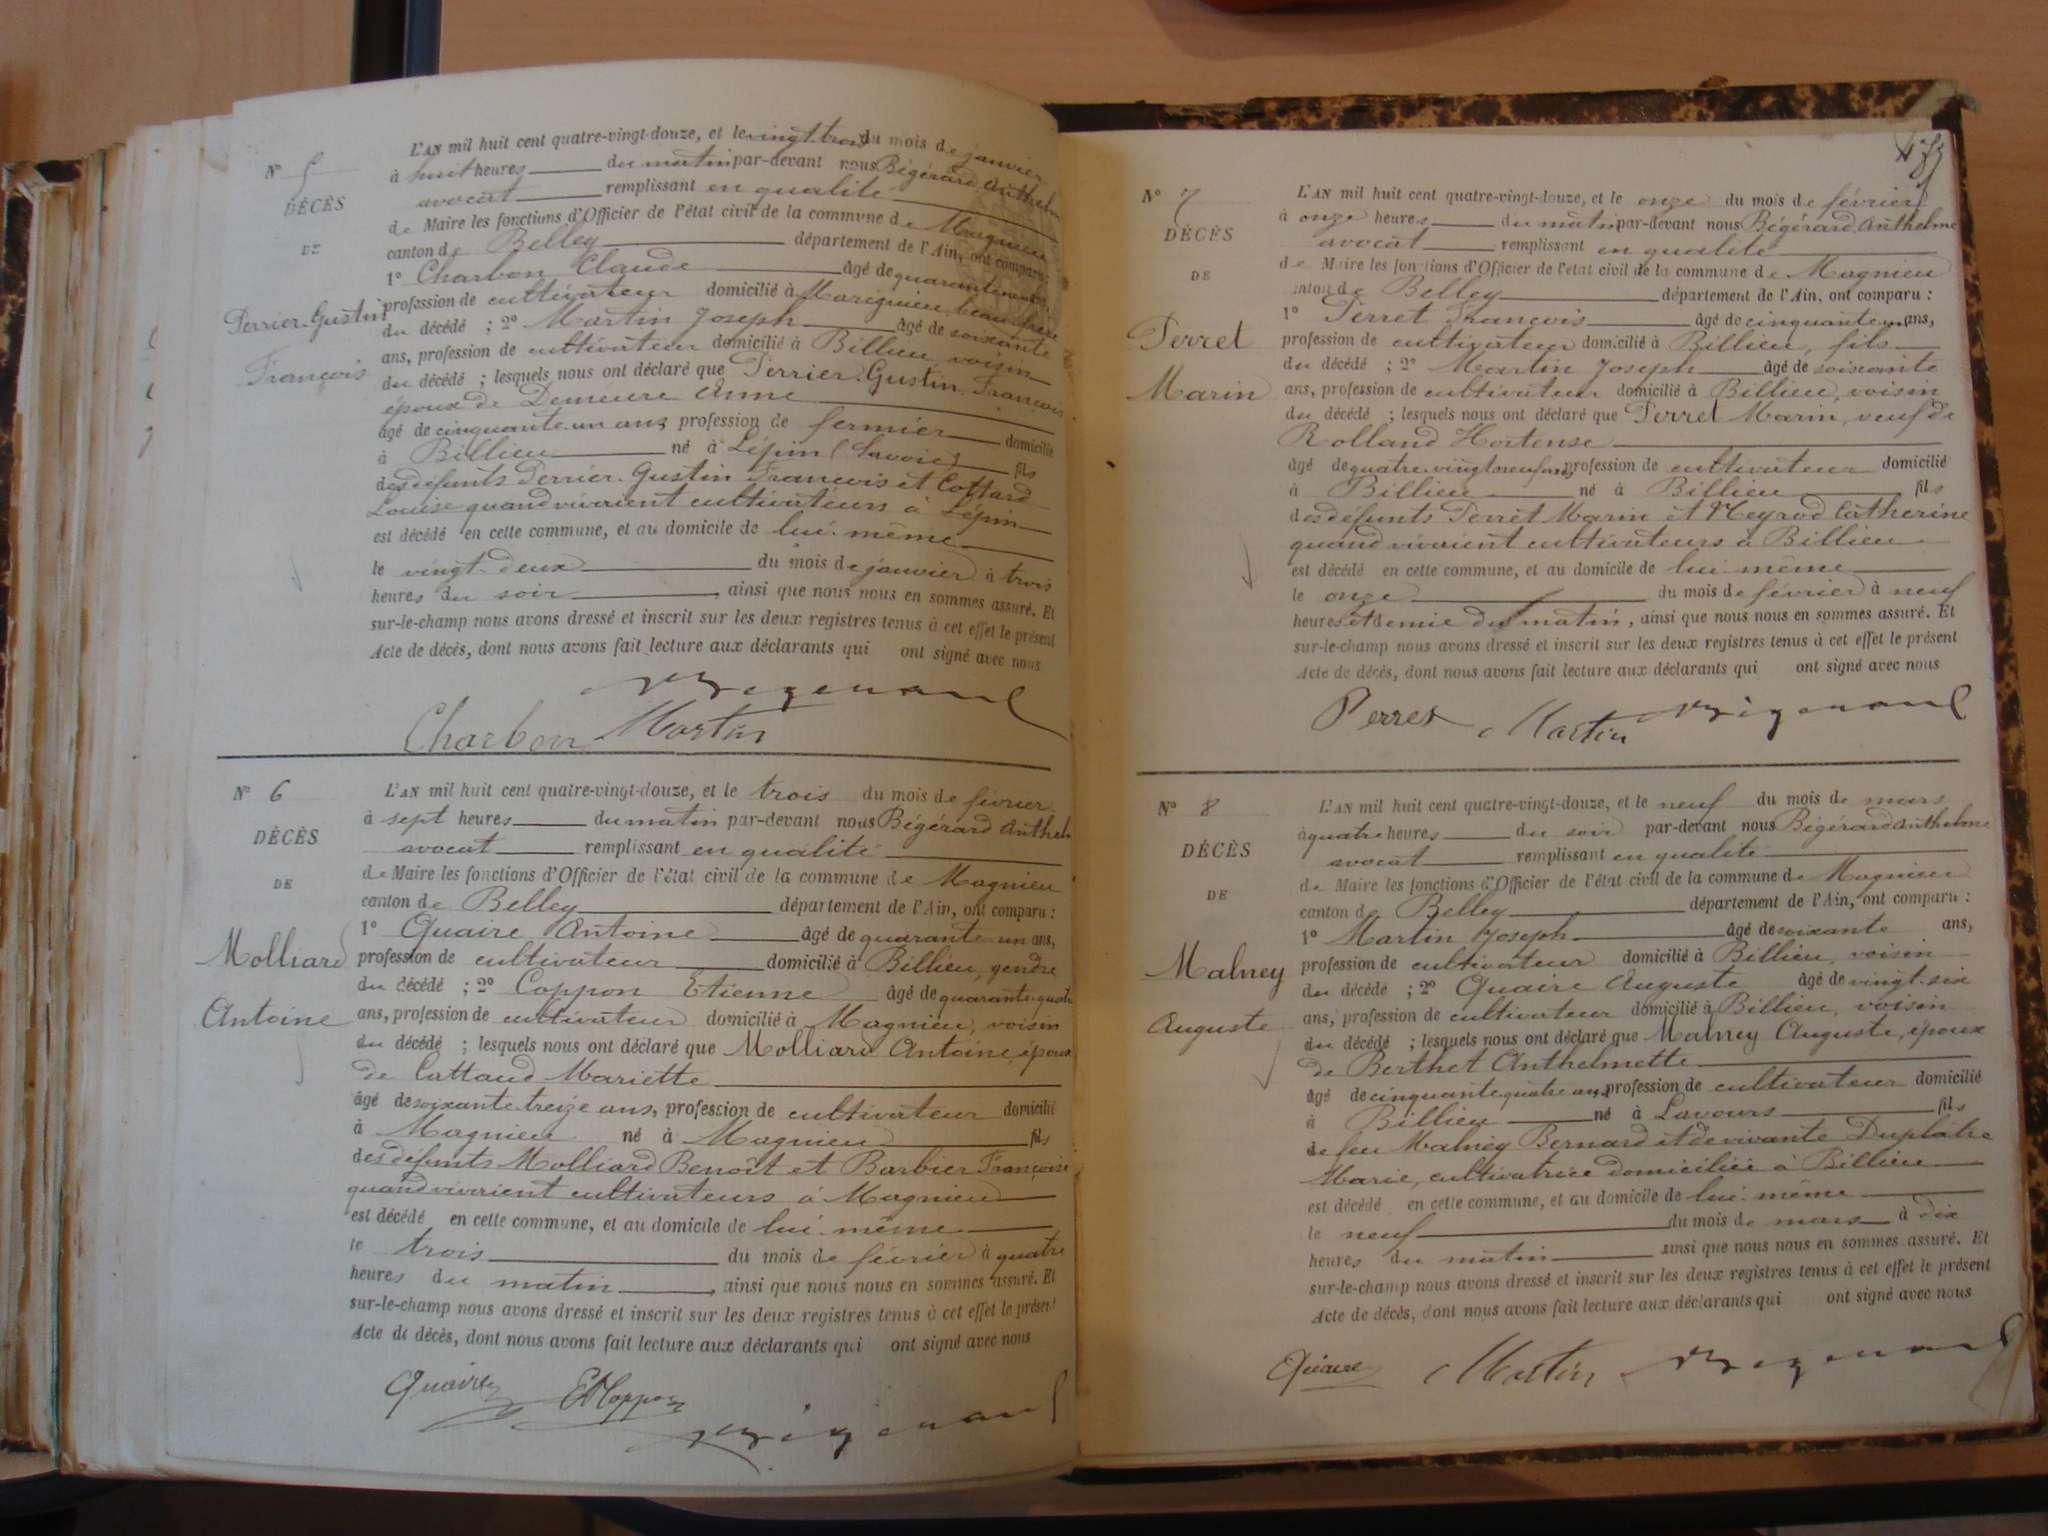 N° 5
DÉCÈS
DE
Perrier-Gustin
François
L'AN mil huit cent quatre-vingt-douze, et le vingt-trois du mois de janvier
à huit heures du matin par-devant nous Bégérard Anthelm
avocat remplissant en qualité
de Maire les fonctions d'Officier de l'état civil de la commune de Magnieu
canton de Belley département de l'Ain, ont comparu
1° Charbon Claude âgé de
profession de cultivateur domicilié à Marignieu, beau frère
du décédé ; 2° Martin Joseph âgé de soixante
ans, profession de cultivateur domicilié à Billieu, voisin
du décédé ; lesquels nous ont déclaré que Perrier-Gustin François
époux de Demeure Anne
âgé de cinquante un ans profession de fermier domicilié
à Billieu né à Lépin (Savoie) fils
des défunts Perrier-Gustin François et Cottard
Louise quand vivaient cultivateurs à Lépin
est décédé en cette commune, et au domicile de lui-même
le vingt-deux du mois de janvier à trois
heures du soir, ainsi que nous nous en sommes assuré. Et
sur-le-champ nous avons dressé et inscrit sur les deux registres tenus à cet effet le présent
Acte de décès, dont nous avons fait lecture aux déclarants qui ont signé avec nous
Charbon Martin
N° 6
DÉCÈS
DE
Molliard
Antoine
L'AN mil huit cent quatre-vingt-douze, et le trois du mois de février
à sept heures du matin par-devant nous Bégérard Anthelm
avocat remplissant en qualité
de Maire les fonctions d'Officier de l'état civil de la commune de Magnieu
canton de Belley département de l'Ain, ont comparu :
1° Quaire Antoine âgé de quarante-un ans,
profession de cultivateur domicilié à Billieu, gendre
du décédé ; 2° Coppon Etienne âgé de quarante-quatr
ans, profession de cultivateur domicilié à Magnieu, voisin
du décédé ; lesquels nous ont déclaré que Molliard Antoine, époux
de Cattaud Mariette
âgé de soixante treize ans, profession de cultivateur domicilié
à Magnieu né à Magnieu fils
des défunts Molliard Benoît et Barbier Françoise
quand vivaient cultivateurs à Magnieu
est décédé en cette commune, et au domicile de lui-même
le trois du mois de février à quatre
heures du matin, ainsi que nous nous en sommes assuré. Et
sur-le-champ nous avons dressé et inscrit sur les deux registres tenus à cet effet le présent
Acte de décès, dont nous avons fait lecture aux déclarants qui ont signé avec nous
Quaire Et Coppon
N° 7
DÉCÈS
DE
Perret
Marin
L'AN mil huit cent quatre-vingt-douze, et le onze du mois de février
à onze heures du matin par-devant nous Bégérard Anthelme
avocat remplissant en qualité
de Maire les fonctions d'Officier de l'état civil de la commune de Magnieu
canton de Belley département de l'Ain, ont comparu :
1° Perret François âgé de cinquante un ans,
profession de cultivateur domicilié à Billieu, fils
du décédé ; 2° Martin Joseph âgé de soixante
ans, profession de cultivateur domicilié à Billieu, voisin
du décédé ; lesquels nous ont déclaré que Perret Marin, veuf de
Rolland Hortense
âgé de quatre-vingt neuf ans, profession de cultivateur domicilié
à Billieu né à Billieu fils
des défunts Perret Marin et Meyrod Catherine
quand vivaient cultivateurs à Billieu
est décédé en cette commune, et au domicile de lui-même
le onze du mois de février à neuf
heures et demie du matin, ainsi que nous nous en sommes assuré. Et
sur-le-champ nous avons dressé et inscrit sur les deux registres tenus à cet effet le présent
Acte de décès, dont nous avons fait lecture aux déclarants qui ont signé avec nous
Perret Martin
N° 8
DÉCÈS
DE
Malney
Auguste
L'AN mil huit cent quatre-vingt-douze, et le neuf du mois de mars
à quatre heures du soir par-devant nous Bégérard Anthelme
avocat remplissant en qualité
de Maire les fonctions d'Officier de l'état civil de la commune de Magnieu
canton de Belley département de l'Ain, ont comparu :
1° Martin Joseph âgé de soixante ans,
profession de cultivateur domicilié à Billieu, voisin
du décédé ; 2° Quaire Auguste âgé de vingt-six
ans, profession de cultivateur domicilié à Billieu, voisin
du décédé ; lesquels nous ont déclaré que Malney Auguste, époux
de Berthet Anthelmette
âgé de cinquante quatre ans, profession de cultivateur domicilié
à Billieu né à Lavours fils
de feu Malney Bernard et de vivante Duplâtre
Marie, cultivatrice domiciliée à Billieu
est décédé en cette commune, et au domicile de lui-même
le neuf du mois de mars à dix
heures du matin ainsi que nous nous en sommes assuré. Et
sur-le-champ nous avons dressé et inscrit sur les deux registres tenus à cet effet le présent
Acte de décès, dont nous avons fait lecture aux déclarants qui ont signé avec nous
Quaire Martin